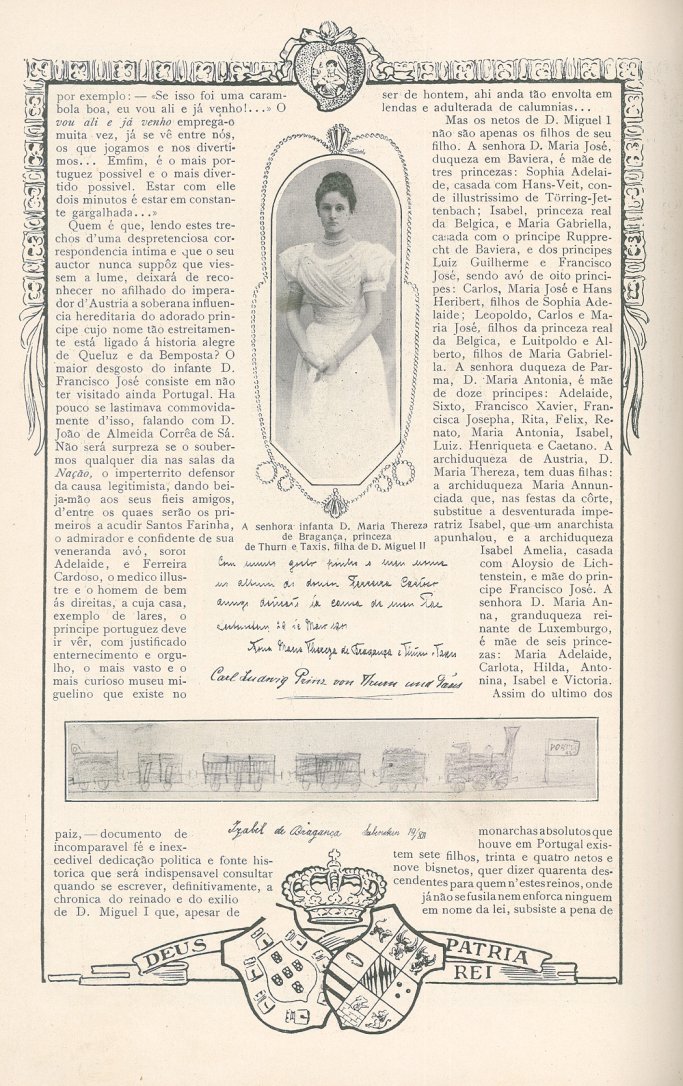 por exemplo: — «Se isso foi uma caram-
bola boa, eu vou ali e já venho!...» O
vou ali e já venho emprega-o
muita vez, já se vê entre nós,
os que jogamos e nos diverti-
mos... Emfim, é o mais por-
tuguez possivel e o mais diver-
tido possivel. Estar com elle
dois minutos é estar em constan-
te gargalhada...»
Quem é que, lendo estes tre-
chos d'uma despretenciosa cor-
respondencia intima e que o seu
auctor nunca suppôz que vies-
sem a lume, deixará de reco-
nhecer no afilhado do impera-
dor d'Austria a soberana influen-
cia hereditaria do adorado prin-
cipe cujo nome tão estreitamen-
te está ligado á historia alegre
de Queluz e da Bemposta? O
maior desgosto do infante D.
Francisco José consiste em não
ter visitado ainda Portugal. Ha
pouco se lastimava commovida-
mente d'isso, falando com D.
João de Almeida Corrêa de Sá.
Não será surpreza se o souber-
mos qualquer dia nas salas da
Nação, o imperterito defensor
da causa legitimista, dando bei-
ja-mão aos seus fieis amigos,
d'entre os quaes serão os pri-
meiros a acudir Santos Farinha,
o admirador e confidente de sua
veneranda avó, soror
Adelaide, e Ferreira
Cardoso, o medico illus-
tre e o homem de bem
ás direitas, a cuja casa,
exemplo de lares, o
principe portuguez deve
ir vêr, com justificado
enternecimento e orgu-
lho, o mais vasto e o
mais curioso museu mi-
guelino que existe no
A senhora infanta D. Maria Thereza
de Bragança, princeza
de Thurn e Taxis, filha de D. Miguel II
Com muito gosto ponho o meu nome
no album da
amigo da causa de meu Pae
28 de Maio
Maria Thereza de Bragança e Thurn e Taxis
Carl Ludwig Prinz von Thurn und Taxis
PORTO
Izabel de Bragança
paiz, — documento de
incomparavel fé e inex-
cedivel dedicação politica e fonte his-
torica que será indispensavel consultar
quando se escrever, definitivamente, a
chronica do reinado e do exilio
de D. Miguel I que, apesar de
ser de hontem, ahi anda tão envolta em
lendas e adulterada de calumnias...
Mas os netos de D. Miguel 1
não são apenas os filhos de seu
filho. A senhora D. Maria José,
duqueza em Baviera, é mãe de
tres princezas: Sophia Adelai-
de, casada com Hans-Veit, con-
de illustrissimo de Törring-Jet-
tenbach; Isabel, princeza real
da Belgica, e Maria Gabriella,
casada com o principe Ruppre-
cht de Baviera, e dos principes
Luiz Guilherme e Francisco
José, sendo avó de oito princi-
pes: Carlos, Maria José e Hans
Heribert, filhos de Sophia Ade-
laide; Leopoldo, Carlos e Ma-
ria José, filhos da princeza real
da Belgica, e Luitpoldo e Al-
berto, filhos de Maria Gabriel-
la. A senhora duqueza de Par-
ma, D. Maria Antonia, é mãe
de doze principes: Adelaide,
Sixto, Francisco Xavier, Fran-
cisca Josepha, Rita, Felix, Re-
nato, Maria Antonia, Isabel,
Luiz. Henriqueta e Caetano. A
archiduqueza de Austria, D.
Maria Thereza, tem duas filhas:
a archiduqueza Maria Annun-
ciada que, nas festas da côrte,
substitue a desventurada impe-
ratriz Isabel, que um anarchista
apunhalou, e a archiduqueza
Isabel Amelia, casada
com Aloysio de Lich-
tenstein, e mãe do prin-
cipe Francisco José. A
senhora D. Maria An-
na, granduqueza rei-
nante de Luxemburgo,
é mãe de seis prince-
zas: Maria Adelaide,
Carlota, Hilda, Anto-
nina, Isabel e Victoria.
Assim do ultimo dos
monarchas absolutos que
houve em Portugal exis-
tem sete filhos, trinta e quatro netos e
nove bisnetos, quer dizer quarenta des-
cendentes para quem n'estes reinos, onde
já não se fusila nem enforca ninguem
em nome da lei, subsiste a pena de
DEUS
PATRIA
REI